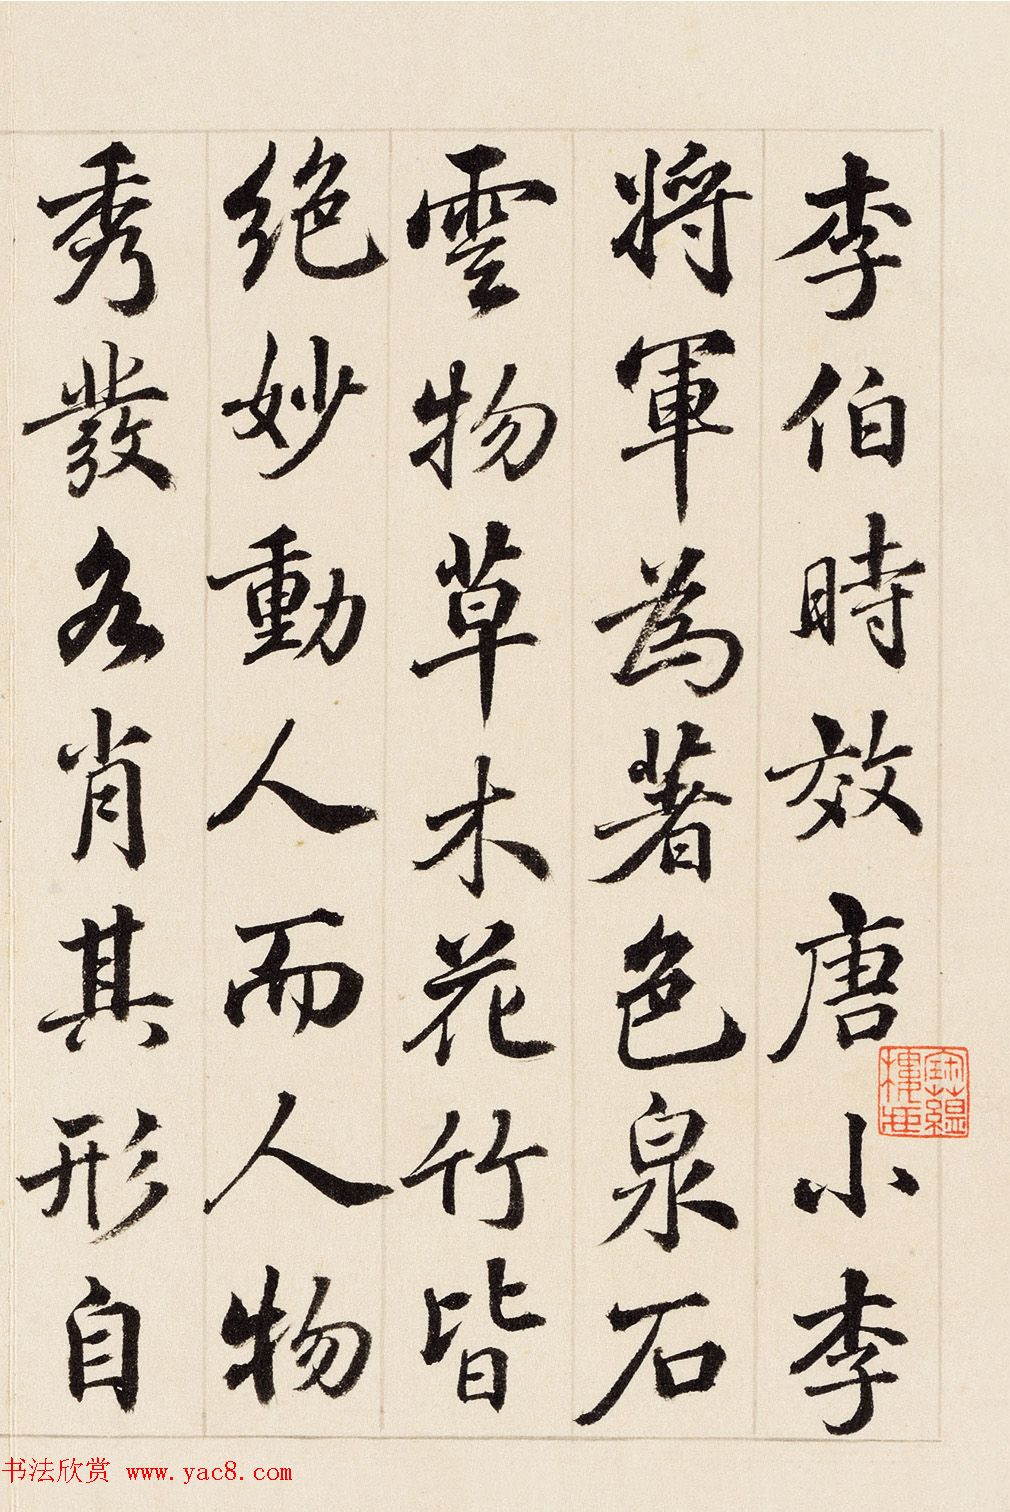 李伯時效唐小李
將軍為著色泉石
雲物草木花竹皆
絶妙動人而人物
秀發各肖其形自
书法欣赏 www.yac8.com